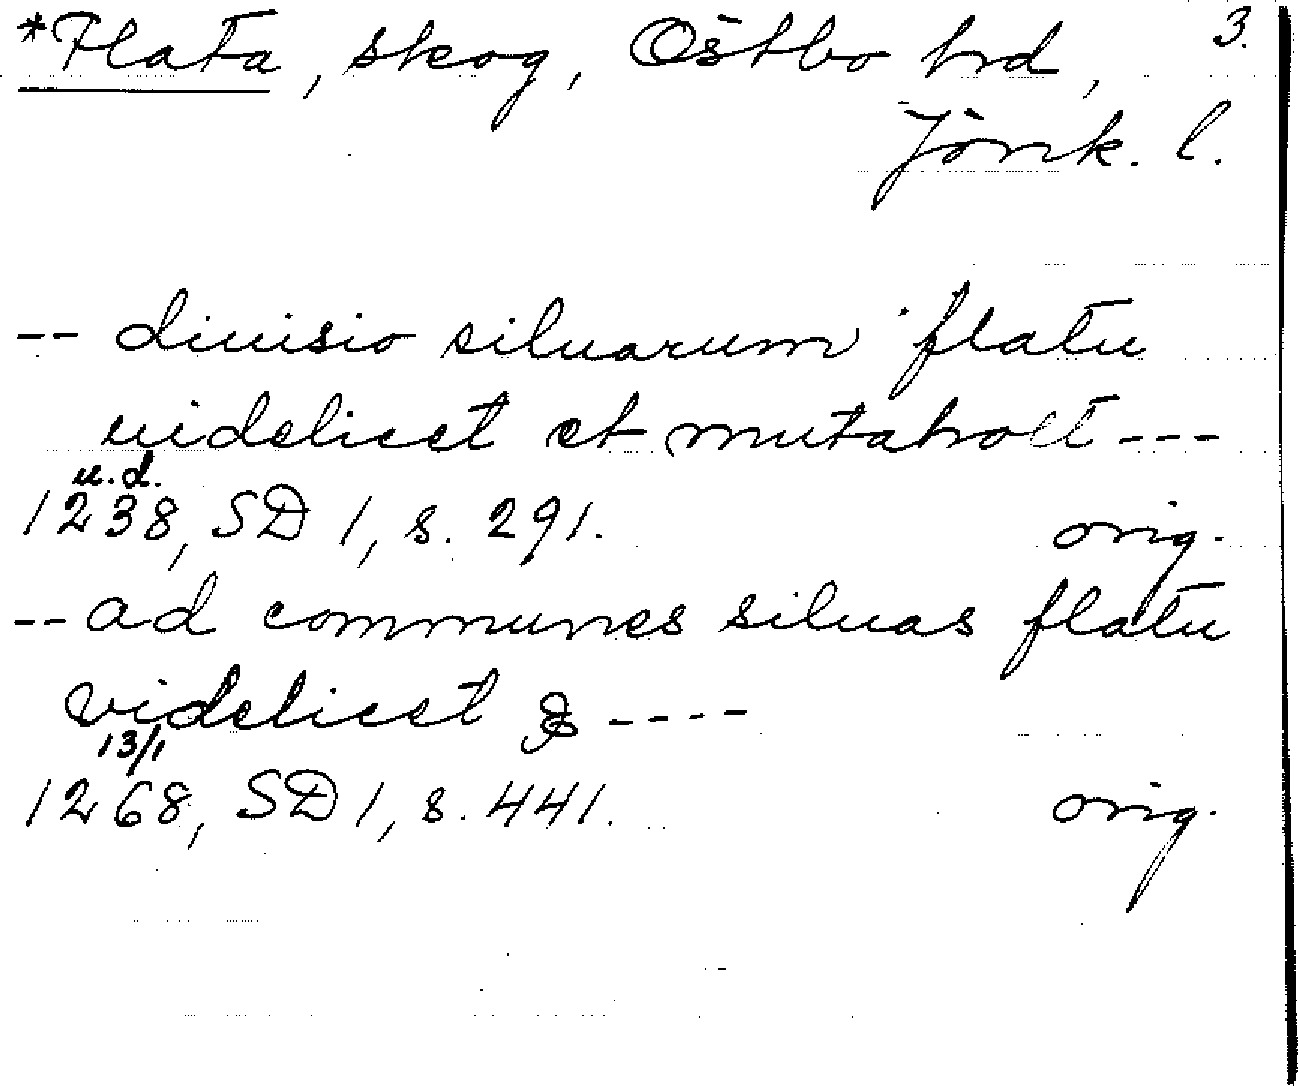 *Flata, skog, Östbo hd, 3.
Jönk. l.
-- diuisio siluarum flatu
uidelicet et mutaholt ---
u.d.
1238, SD 1, s. 291. orig.
-- ad communes siluas flatu
videlicet & ----
13/1
1268, SD 1, s. 441. orig.